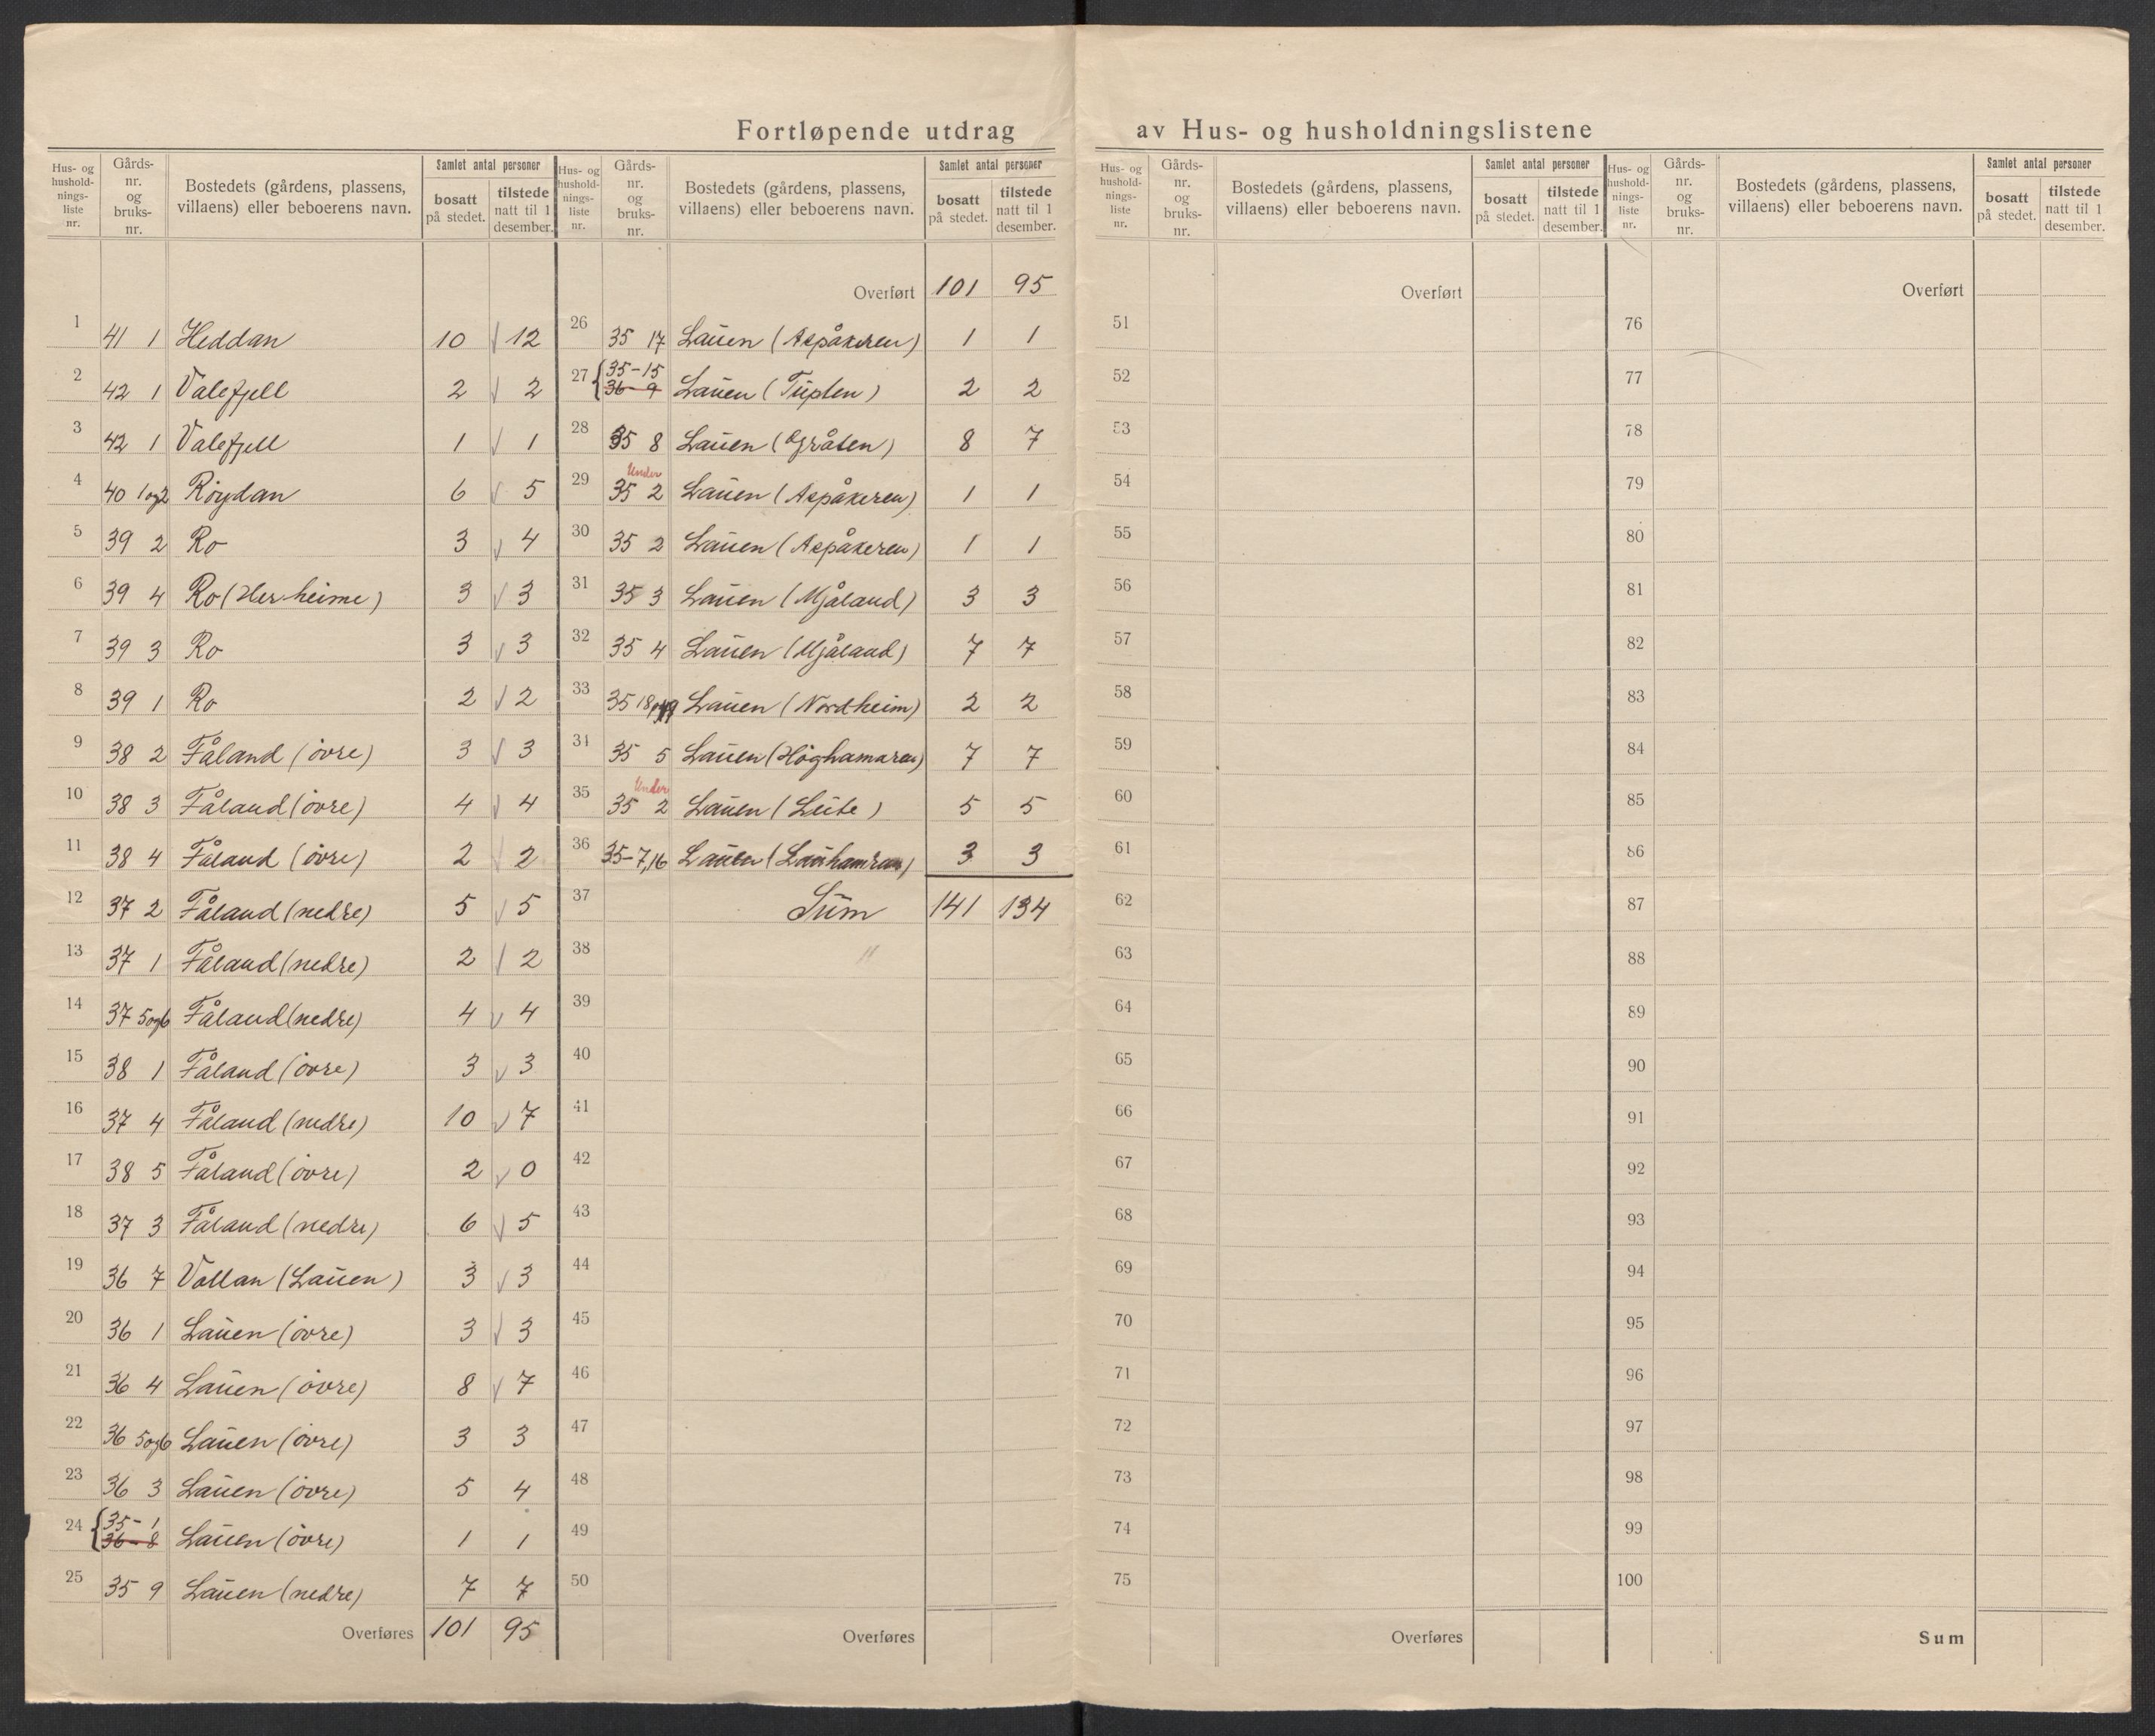 Fortløpende utdrag av Hus- og husholdningslistene
Hus- og husholdnings-liste nr. | Gårds-nr. og bruks-nr. | Bostedets (gårdens, plassens, villaens) eller beboerens navn. | Samlet antal personer | bosatt på stedet. | tilstede natt til 1 desember.
1 | 41 1 | Heddan | 10 | 12
2 | 42 1 | Valefjell | 2 | 2
3 | 42 1 | Valefjell | 1 | 1
4 | 40 1og2 | Röydan | 6 | 5
5 | 39 2 | Ro | 3 | 4
6 | 39 4 | Ro (Her-heime) | 3 | 3
7 | 39 3 | Ro | 3 | 3
8 | 39 1 | Ro | 2 | 2
9 | 38 2 | Fåland (övre) | 3 | 3
10 | 38 3 | Fåland (övre) | 4 | 4
11 | 38 4 | Fåland (övre) | 2 | 2
12 | 37 2 | Fåland (nedre) | 5 | 5
13 | 37 1 | Fåland (nedre) | 2 | 2
14 | 37 5og6 | Fåland (nedre) | 4 | 4
15 | 38 1 | Fåland (övre) | 3 | 3
16 | 37 4 | Fåland (nedre) | 10 | 7
17 | 38 5 | Fåland (övre) | 2 | 0
18 | 37 3 | Fåland (nedre) | 6 | 5
19 | 36 7 | Vollan (Lauen) | 3 | 3
20 | 36 1 | Lauen (övre) | 3 | 3
21 | 36 4 | Lauen (övre) | 8 | 7
22 | 36 5og6 | Lauen (övre) | 3 | 3
23 | 36 3 | Lauen (övre) | 5 | 4
24 | 35-1 36-8 | Lauen (övre) | 1 | 1
25 | 35 9 | Lauen (nedre) | 7 | 7
Overføres | 101 | 95
Hus- og husholdnings-liste nr. | Gårds-nr. og bruks-nr. | Bostedets (gårdens, plassens, villaens) eller beboerens navn. | Samlet antal personer | bosatt på stedet. | tilstede natt til 1 desember.
Overført | 101 | 95
26 | 35 17 | Lauen (Aspåkeren) | 1 | 1
27 | 35-15 36-9 | Lauen (Tuften) | 2 | 2
28 | 35 8 | Lauen (Gråten) | 8 | 7
29 | Under 35 2 | Lauen (Aspåkeren) | 1 | 1
30 | 35 2 | Lauen (Aspåkeren) | 1 | 1
31 | 35 3 | Lauen (Mjåland) | 3 | 3
32 | 35 4 | Lauen (Mjåland) | 7 | 7
33 | 35 18og19 | Lauen (Nordheim) | 2 | 2
34 | 35 5 | Lauen (Höghamaren) | 7 | 7
35 | Under 35 2 | Lauen (Leite) | 5 | 5
36 | 35-7,16 | Lauen (Lauhamren) | 3 | 3
37 | Sum | 141 | 134
38
39
40
41
42
43
44
45
46
47
48
49
50
Overføres
Hus- og husholdnings-liste nr. | Gårds-nr. og bruks-nr. | Bostedets (gårdens, plassens, villaens) eller beboerens navn. | Samlet antal personer | bosatt på stedet. | tilstede natt til 1 desember.
Overført
51
52
53
54
55
56
57
58
59
60
61
62
63
64
65
66
67
68
69
70
71
72
73
74
75
Overføres
Hus- og husholdnings-liste nr. | Gårds-nr. og bruks-nr. | Bostedets (gårdens, plassens, villaens) eller beboerens navn. | Samlet antal personer | bosatt på stedet. | tilstede natt til 1 desember.
Overført
76
77
78
79
80
81
82
83
84
85
86
87
88
89
90
91
92
93
94
95
96
97
98
99
100
Sum